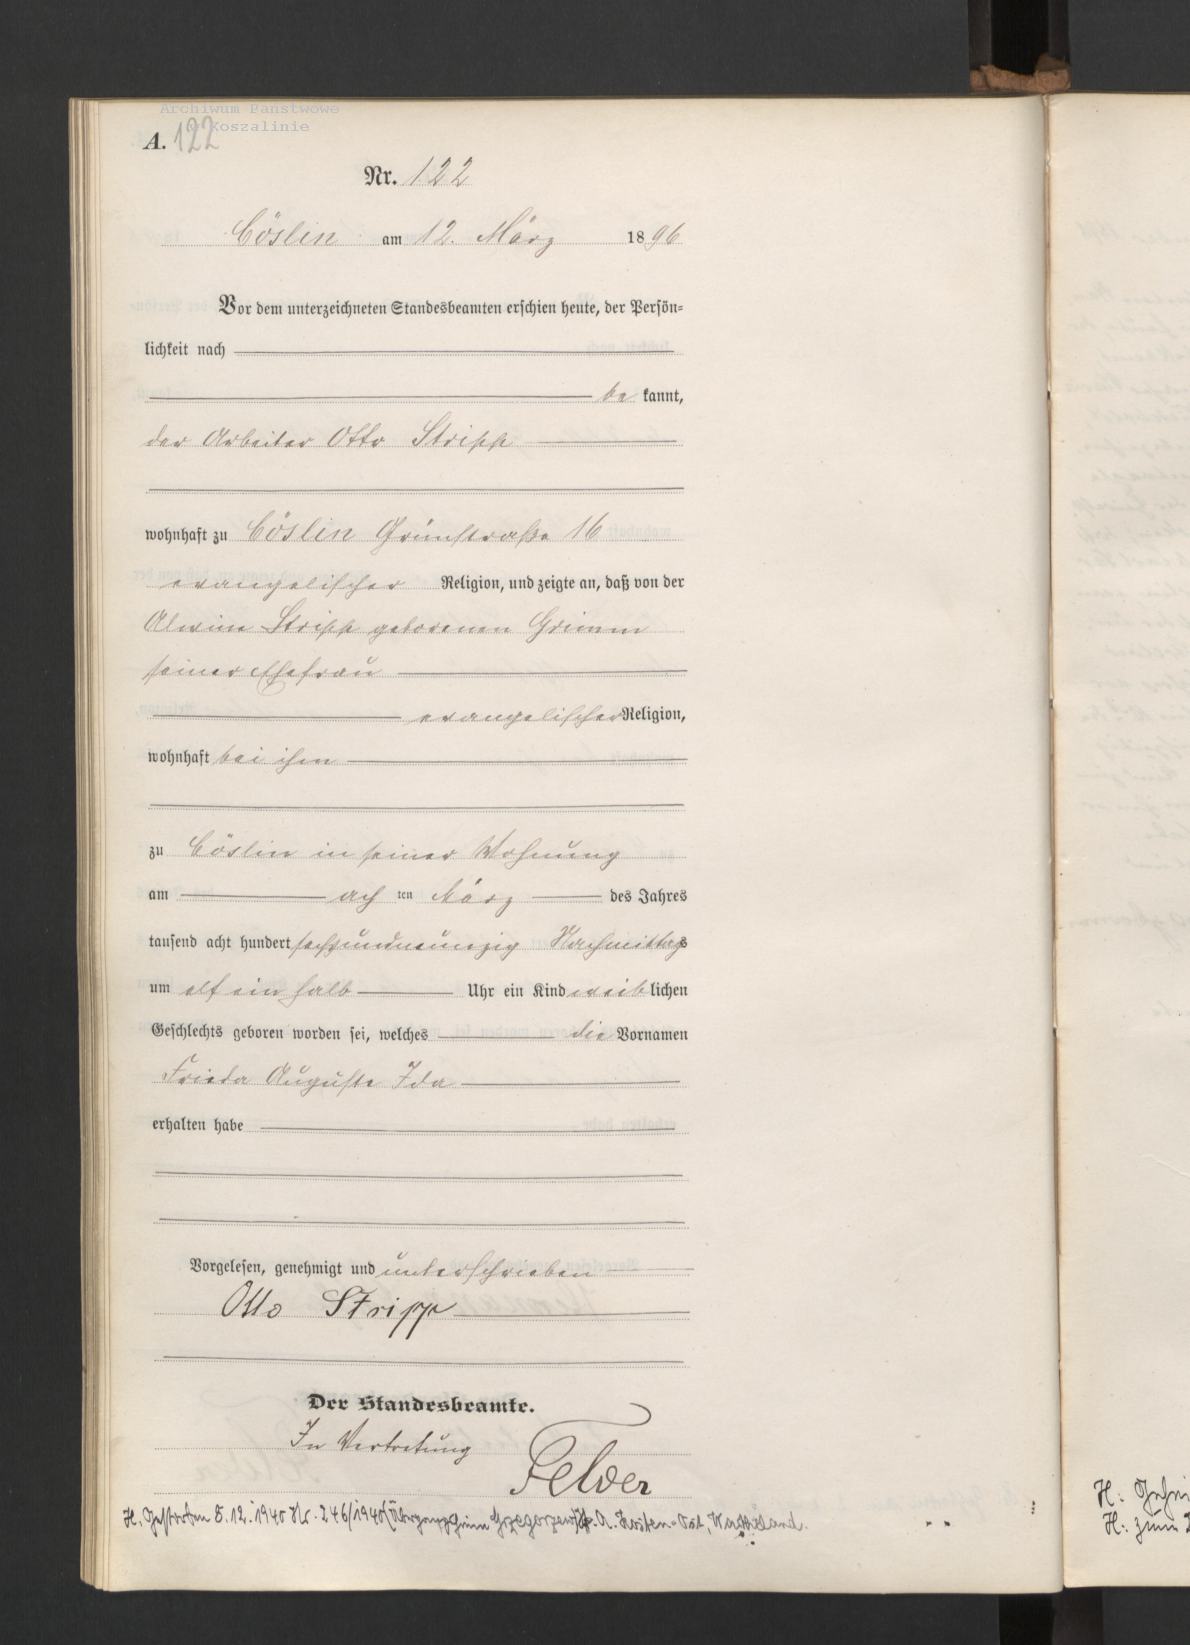 Archiwum Państwowe
w Koszalinie
A. 122
Nr. 122
Cöslin am 12. März 1896
Vor dem unterzeichneten Standesbeamten erschien heute, der Persön-
lichkeit nach
be kannt,
der Arbeiter Otto Stripp
wohnhaft zu Cöslin Grünstraße 16
evangelischer Religion, und zeigte an, daß von der
Alwine Stripp geborenen Grimm
seiner Ehefrau
evangelischer Religion,
wohnhaft bei ihm
zu Cöslin in seiner Wohnung
am ach ten März des Jahres
tausend acht hundert sechsundneunzig Nachmittags
um elf ein halb Uhr ein Kind weiblichen
Geschlechts geboren worden sei, welches die Vornamen
Frieda Auguste Ida
erhalten habe
Vorgelesen, genehmigt und unterschrieben
Otto Stripp
Der Standesbeamte.
In Vertretung
Felver
H. Gestorben 8.12.1940 Nr. 246/1940 St. A. Kosten-Ost, Wartheland.
H:
H: zum